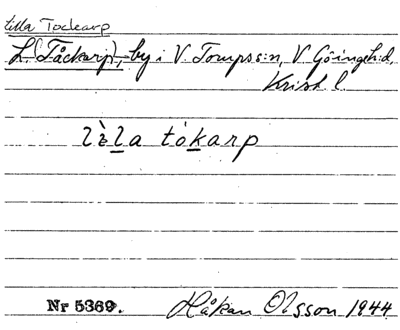 Lilla Tockarp
L. (Tåckarp), by i V. Torups s:n, V. Göinge h:d,
Krist. l.
lìlla tókarp
Nr 5369. Håkan Olsson 1944